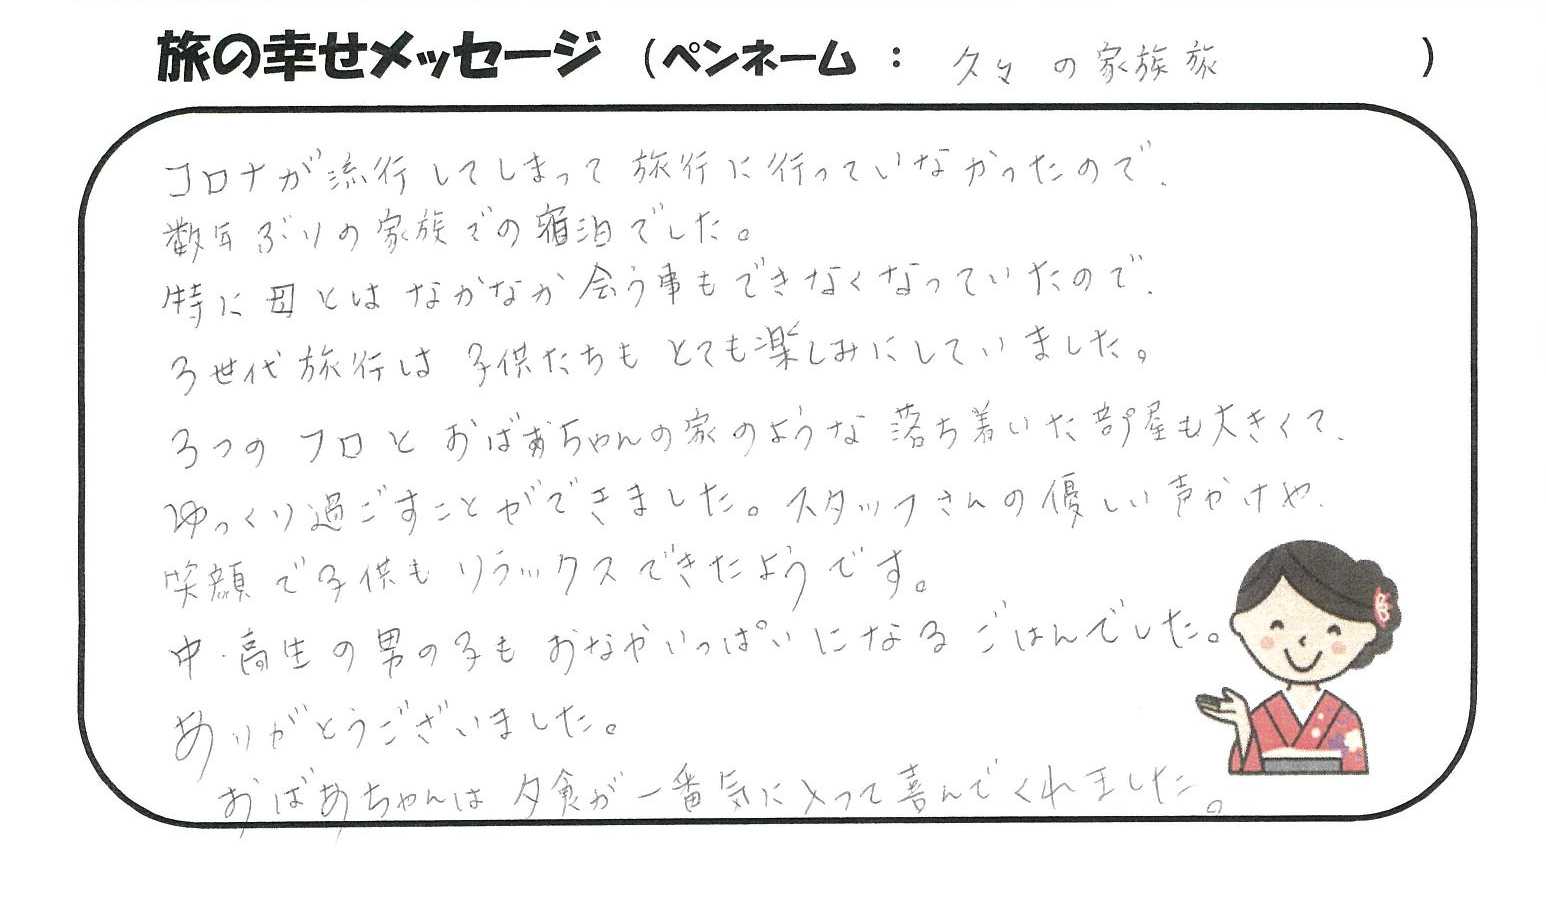 旅の幸せメッセージ （ペンネーム ： 久々の家族旅 ）
コロナが流行してしまって旅行に行っていなかったので、
数年ぶりの家族での宿泊でした。
特に母とはなかなか会う事もできなくなっていたので、
3世代旅行は子供たちもとても楽しみにしていました。
3つのフロとおばあちゃんの家のような落ち着いた部屋も大きくて、
ゆっくり過ごすことができました。スタッフさんの優しい声かけや、
笑顔で子供もリラックスできたようです。
中・高生の男の子もおなかいっぱいになるごはんでした。
ありがとうございました。
おばあちゃんは夕食が一番気に入って喜んでくれました。